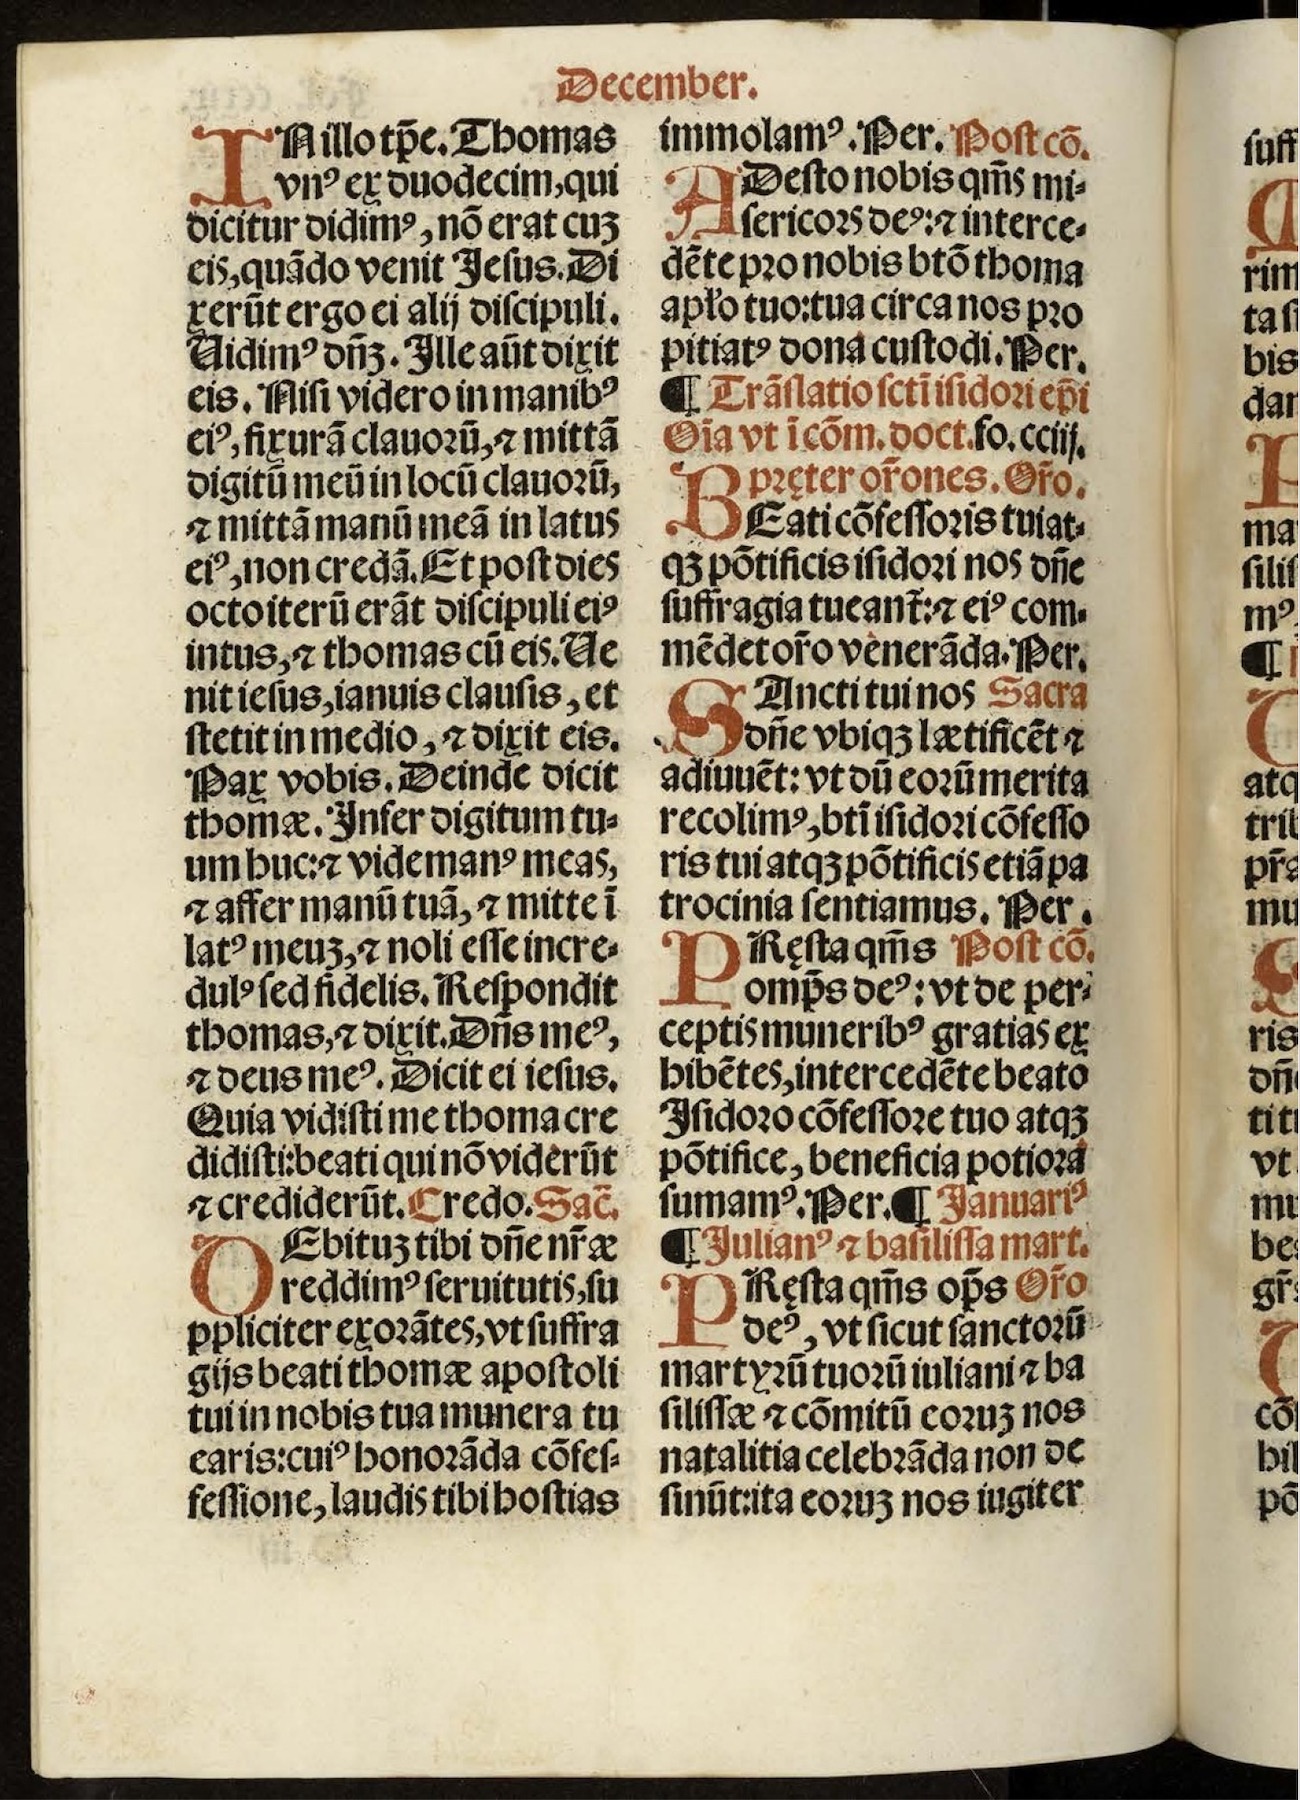 December.
IN illo tp̄e. Thomas
vnꝰ ex duodecim, qui
dicitur didimꝰ, nō erat cuȝ
eis, quādo venit Jesus. Di
xerūt ergo ei alij discipuli.
Uidimꝰ dn̄ȝ. Ille aūt dixit
eis. Nisi videro in manibꝰ
eiꝰ, fixurā clauorū, ⁊ mittā
digitū meū in locū clauorū,
⁊ mittā manū meā in latus
eiꝰ, non credā. Et post dies
octo iterū erāt discipuli eiꝰ
intus, ⁊ thomas cū eis. Ue
nit iesus, ianuis clausis, et
stetit in medio, ⁊ dixit eis.
Pax vobis. Deinde dicit
thomæ. Infer digitum tu-
um huc: ⁊ vide manꝰ meas,
⁊ affer manū tuā, ⁊ mitte ī
latꝰ meuȝ, ⁊ noli esse incre-
dulꝰ sed fidelis. Respondit
thomas, ⁊ dixit. Dn̄s meꝰ,
⁊ deus meꝰ. Dicit ei iesus.
Quia vidisti me thoma cre
didisti: beati qui nō viderūt
⁊ crediderūt. Credo. Sac̄.
DEbituȝ tibi dn̄e nr̄æ
reddimꝰ seruitutis, su
ppliciter exorātes, vt suffra
gijs beati thomæ apostoli
tui in nobis tua munera tu
earis: cuiꝰ honorāda cōfes-
fessione, laudis tibi hostias
immolamꝰ. Per. Post cō.
ADesto nobis qm̄s mi-
sericors deꝰ: ⁊ interce-
dēte pro nobis btō thoma
apło tuo: tua circa nos pro
pitiatꝰ dona custodi. Per.
¶ Trāslatio sctī isidori ep̄i
Oīa vt ī cōm. doct. fo. cciij.
pręter or̄ones. Or̄o.
BEati cōfessoris tui at-
qȝ pōtificis isidori nos dn̄e
suffragia tueant̄: ⁊ eiꝰ com-
mēdet or̄o venerāda. Per.
SAncti tui nos Sacra
dn̄e vbiqȝ lætificēt ⁊
adiuuēt: vt dū eorū merita
recolimꝰ, btī isidori cōfesso
ris tui atqȝ pōtificis etiā pa
trocinia sentiamus. Per.
PRęsta qm̄s Post cō.
omp̄s deꝰ: vt de per-
ceptis muneribꝰ gratias ex
hibētes, intercedēte beato
Isidoro cōfessore tuo atqȝ
pōtifice, beneficia potiora
sumamꝰ. Per. ¶ Januariꝰ
¶ Julianꝰ ⁊ basilissa mart.
PRęsta qm̄s op̄s Or̄o
deꝰ, vt sicut sanctorū
martyrū tuorū iuliani ⁊ ba
silissæ ⁊ cōmitū eoruȝ nos
natalitia celebrāda non de
sinūt: ita eoruȝ nos iugiter